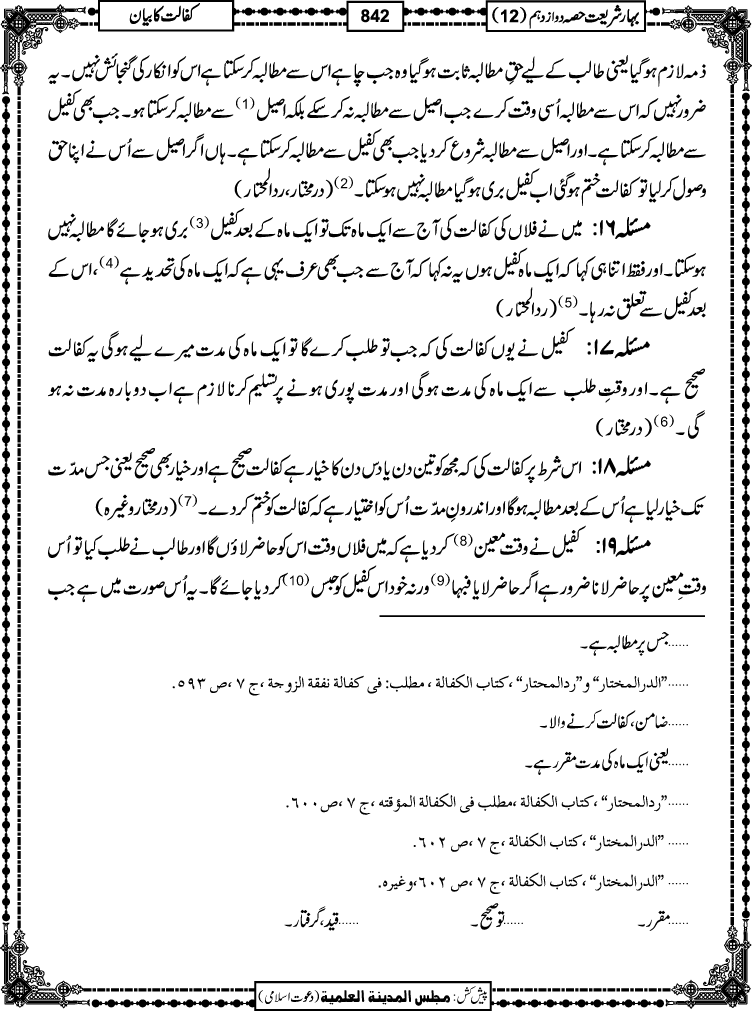 بہارِ شریعت حصہ دوازدہم (12)
842
کفالت کا بیان
ذمہ لازم ہوگیا یعنی طالب کے لیے حقِ مطالبہ ثابت ہوگیا وہ جب چاہے اس سے مطالبہ کرسکتا ہے اس کو انکار کی گنجائش نہیں۔ یہ
ضرور نہیں کہ اس سے مطالبہ اُسی وقت کرے جب اصیل سے مطالبہ نہ کرسکے بلکہ اصیل(1) سے مطالبہ کرسکتا ہو۔ جب بھی کفیل
سے مطالبہ کرسکتا ہے۔ اور اصیل سے مطالبہ شروع کردیا جب بھی کفیل سے مطالبہ کرسکتا ہے۔ ہاں اگر اصیل سے اُس نے اپنا حق
وصول کرلیا تو کفالت ختم ہوگئی اب کفیل بری ہوگیا مطالبہ نہیں ہوسکتا۔(2) (درمختار، ردالمحتار)
مسئلہ ۱۶: میں نے فلاں کی کفالت کی آج سے ایک ماہ تک تو ایک ماہ کے بعد کفیل(3) بری ہوجائے گا مطالبہ نہیں
ہوسکتا۔ اور فقط اتنا ہی کہا کہ ایک ماہ کفیل ہوں یہ نہ کہا کہ آج سے جب بھی عرف یہی ہے کہ ایک ماہ کی تحدید ہے(4)، اس کے
بعد کفیل سے تعلق نہ رہا۔(5) (ردالمحتار)
مسئلہ ۱۷: کفیل نے یوں کفالت کی کہ جب تو طلب کرے گا تو ایک ماہ کی مدت میرے لیے ہوگی یہ کفالت
صحیح ہے۔ اور وقتِ طلب سے ایک ماہ کی مدت ہوگی اور مدت پوری ہونے پر تسلیم کرنا لازم ہے اب دوبارہ مدت نہ ہو
گی۔(6) (درمختار)
مسئلہ ۱۸: اس شرط پر کفالت کی کہ مجھ کو تین دن یا دس دن کا خیار ہے کفالت صحیح ہے اور خیار بھی صحیح یعنی جس مدّت
تک خیار لیا ہے اُس کے بعد مطالبہ ہوگا اور اندرونِ مدّت اُس کو اختیار ہے کہ کفالت کو ختم کردے۔(7) (درمختار وغیرہ)
مسئلہ ۱۹: کفیل نے وقت معین(8) کردیا ہے کہ میں فلاں وقت اس کو حاضر لاؤں گا اور طالب نے طلب کیا تو اُس
وقتِ معین پر حاضر لانا ضرور ہے اگر حاضر لایا فبہا(9) ورنہ خود اس کفیل کو حبس(10) کردیا جائے گا۔ یہ اُس صورت میں ہے جب
......جس پر مطالبہ ہے۔
......”الدرالمختار“ و”ردالمحتار“،کتاب الکفالة ، مطلب: فی کفالة نفقة الزوجة ،ج ۷،ص ۵۹۳.
......ضامن، کفالت کرنے والا۔
......یعنی ایک ماہ کی مدت مقرر ہے۔
......”ردالمحتار“،کتاب الکفالة ،مطلب فی الکفالة المؤقته ،ج ۷،ص۶۰۰.
...... ”الدرالمختار“،کتاب الکفالة ،ج ۷،ص ۶۰۲.
...... ”الدرالمختار“،کتاب الکفالة ،ج ۷،ص ۶۰۲،وغیره.
......مقرر۔ ......تو صحیح۔ ......قید، گرفتار۔
پیش کش: مجلس المدینة العلمیة (دعوت اسلامی)